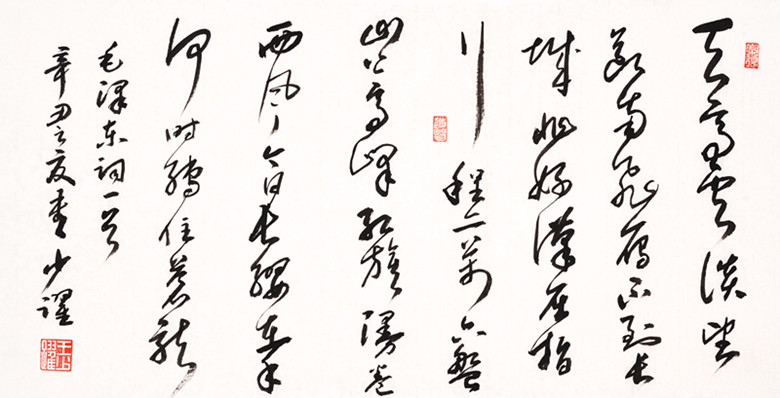 天高雲淡望
断南飛雁不到长
城非好漢屈指
行程二萬六盤
山上高峰红旗漫卷
西風今日长纓在手
何时縛住蒼龍
毛泽东词一首
辛丑之夏書少躍